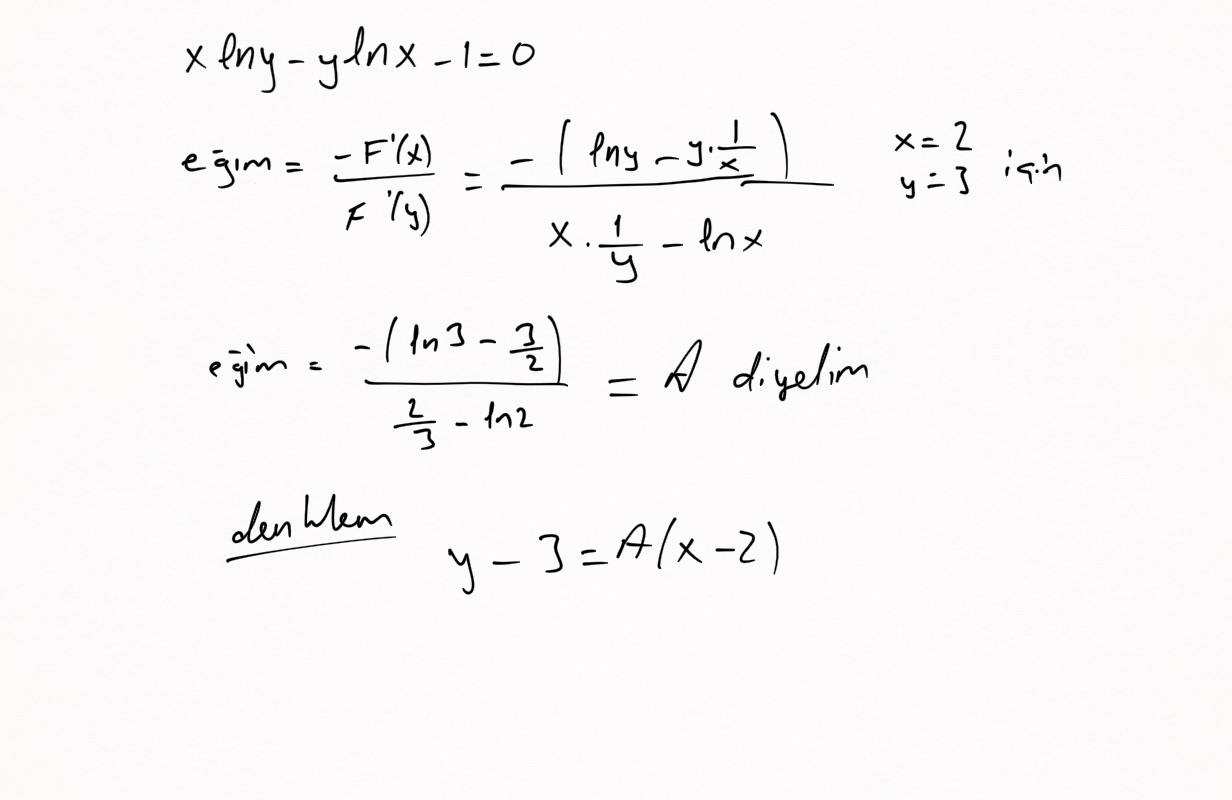 x lny - y lnx - 1 = 0
eğim = -F'(x) / F'(y) = -( lny - y·1/x ) / ( x·1/y - lnx ) x = 2 y = 3 için
eğim = -( ln3 - 3/2 ) / ( 2/3 - ln2 ) = A diyelim
denklem y - 3 = A(x-2)